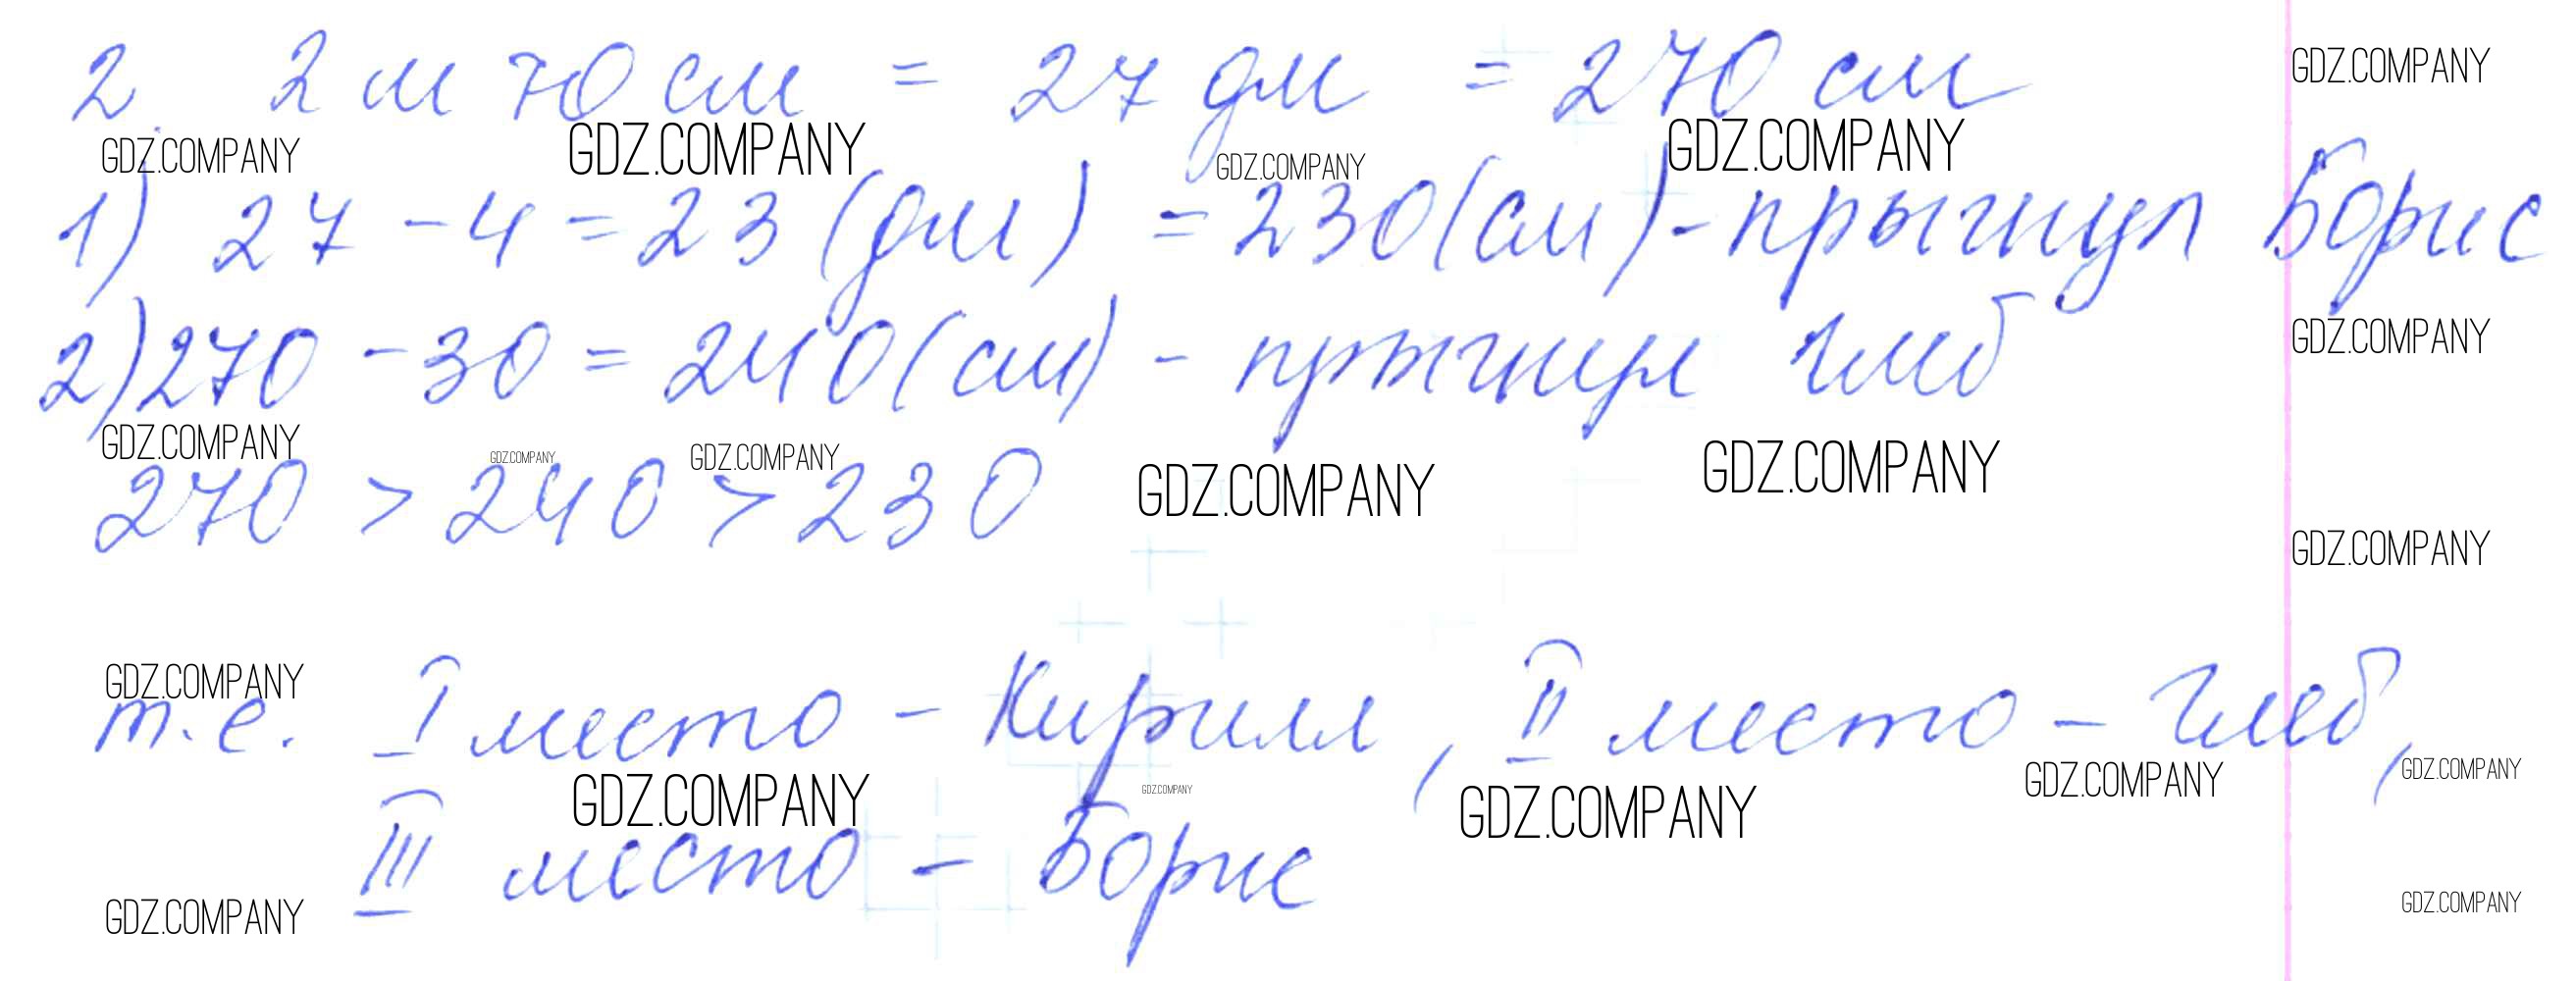 2. 2 м 70 см = 27 дм = 270 см
GDZ.COMPANY
GDZ.COMPANY GDZ.COMPANY GDZ.COMPANY GDZ.COMPANY
1) 27 - 4 = 23 (дм) = 230 (см) - прыгнул Борис
2) 270 - 30 = 240 (см) - прыгнул Глеб
GDZ.COMPANY
GDZ.COMPANY GDZ.COMPANY GDZ.COMPANY GDZ.COMPANY GDZ.COMPANY
270 > 240 > 230
GDZ.COMPANY
GDZ.COMPANY
т.е. I место - Кирилл, II место - Глеб,
GDZ.COMPANY GDZ.COMPANY GDZ.COMPANY GDZ.COMPANY GDZ.COMPANY
III место - Борис
GDZ.COMPANY GDZ.COMPANY